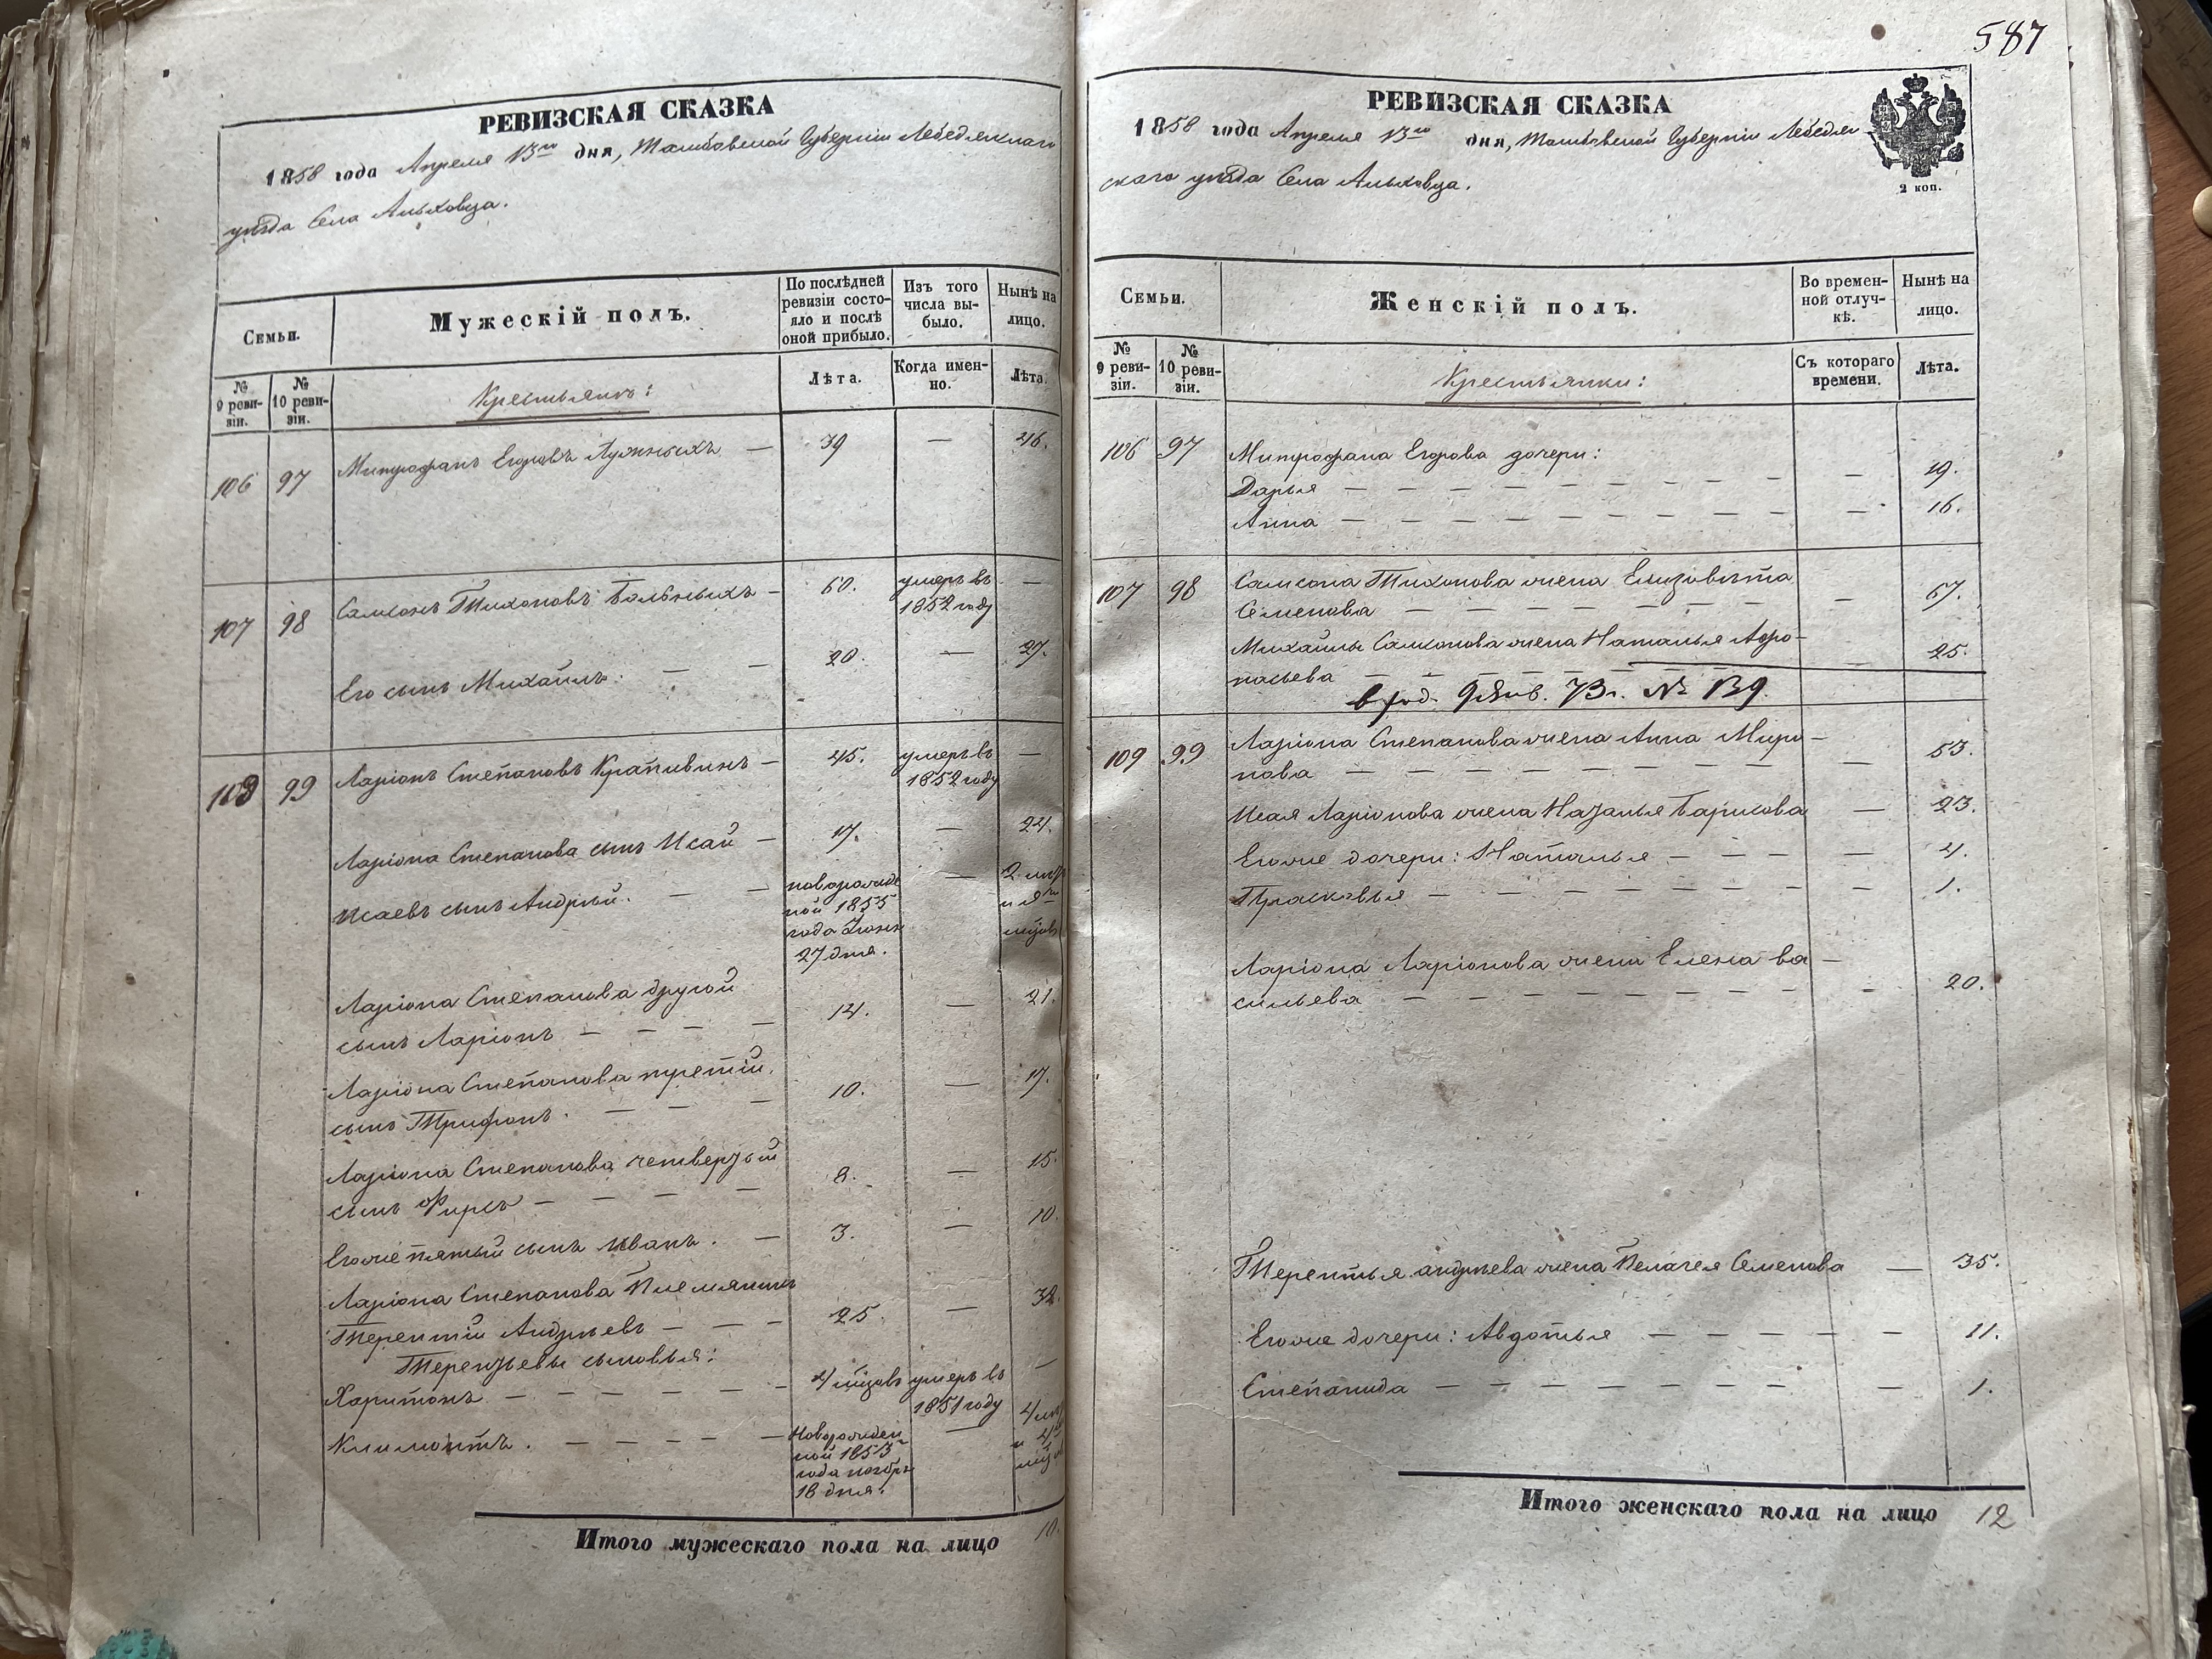 РЕВИЗСКАЯ СКАЗКА
1858 года Апреля 13го дня, Тамбовской Губернии Лебедянскаго
уѣзда Села Альховца.
Семьи.
Мужескій полъ.
По послѣдней ревизіи состояло и послѣ оной прибыло.
Изъ того числа выбыло.
Нынѣ на лицо.
№ 9 ревизіи.
№ 10 ревизіи.
Крестьянъ:
Лѣта.
Когда именно.
Лѣта.
106 97 Митрофанъ Егоровъ Лужныхъ — 39 — 46.
107 98 Самсонъ Тихоновъ Больныхъ — 60. умеръ въ 1852 году —
Его сынъ Михайлъ. — — 20. — 27.
109 99 Ларіонъ Степановъ Крапивинъ — 45. умеръ въ 1852 году —
Ларіона Степанова сынъ Исай — 17. — 24.
Исаевъ сынъ Андрей. — — новорожденой 1855 года Іюня 27 дня. —
Ларіона Степанова другой
сынъ Ларіонъ — — — — 14. — 21.
Ларіона Степанова третій
сынъ Трифонъ. — — — 10. — 17.
Ларіона Степанова четвертый
сынъ Фирсъ — — — — 8. — 15.
Егоже пятый сынъ Иванъ. — 3. — 10.
Ларіона Степанова Племянникъ
Терентій Андреевъ — — — 25. — 32.
Терентьевы сыновья:
Харитонъ — — — — — — 4 мѣцовъ умеръ въ 1851 году —
Климонтъ. — — — — — Новорожденной 1853 года ноября 18 дня. —
Итого мужескаго пола на лицо 10.
587
РЕВИЗСКАЯ СКАЗКА
1858 года Апреля 13го дня, Тамбовской Губерніи Лебедян-
скаго уѣзда Села Альховца.
2 коп.
Семьи.
Женскій полъ.
Во временной отлучкѣ.
Нынѣ на лицо.
№ 9 ревизіи.
№ 10 ревизіи.
Крестьянки:
Съ котораго времени.
Лѣта.
106 97 Митрофана Егорова дочери:
Дарья — — — — — — — — — — 19.
Анна — — — — — — — — — — 16.
107 98 Самсона Тихонова жена Елизовѣта
Семенова — — — — — — — — 67.
Михайлы Самсонова жена Наталья Афро-
насьева — — — — — — — 25.
73г. № 139.
109 99 Ларіона Степанова жена Анна Миро-
нова — — — — — — — — — — 53.
Исая Ларіонова жена Наталья Барисова — 23.
Егоже дочери: Наталья — — — — — 4.
Прасковья — — — — — — — — — 1.
Ларіона Ларіонова жена Елена Ва-
сильева — — — — — — — — — 20.
Терентья андреева жена Пелагея Семенова — 35.
Егоже дочери: Авдотья — — — — — — 11.
Степанида — — — — — — — — — 1.
Итого женскаго пола на лицо 12